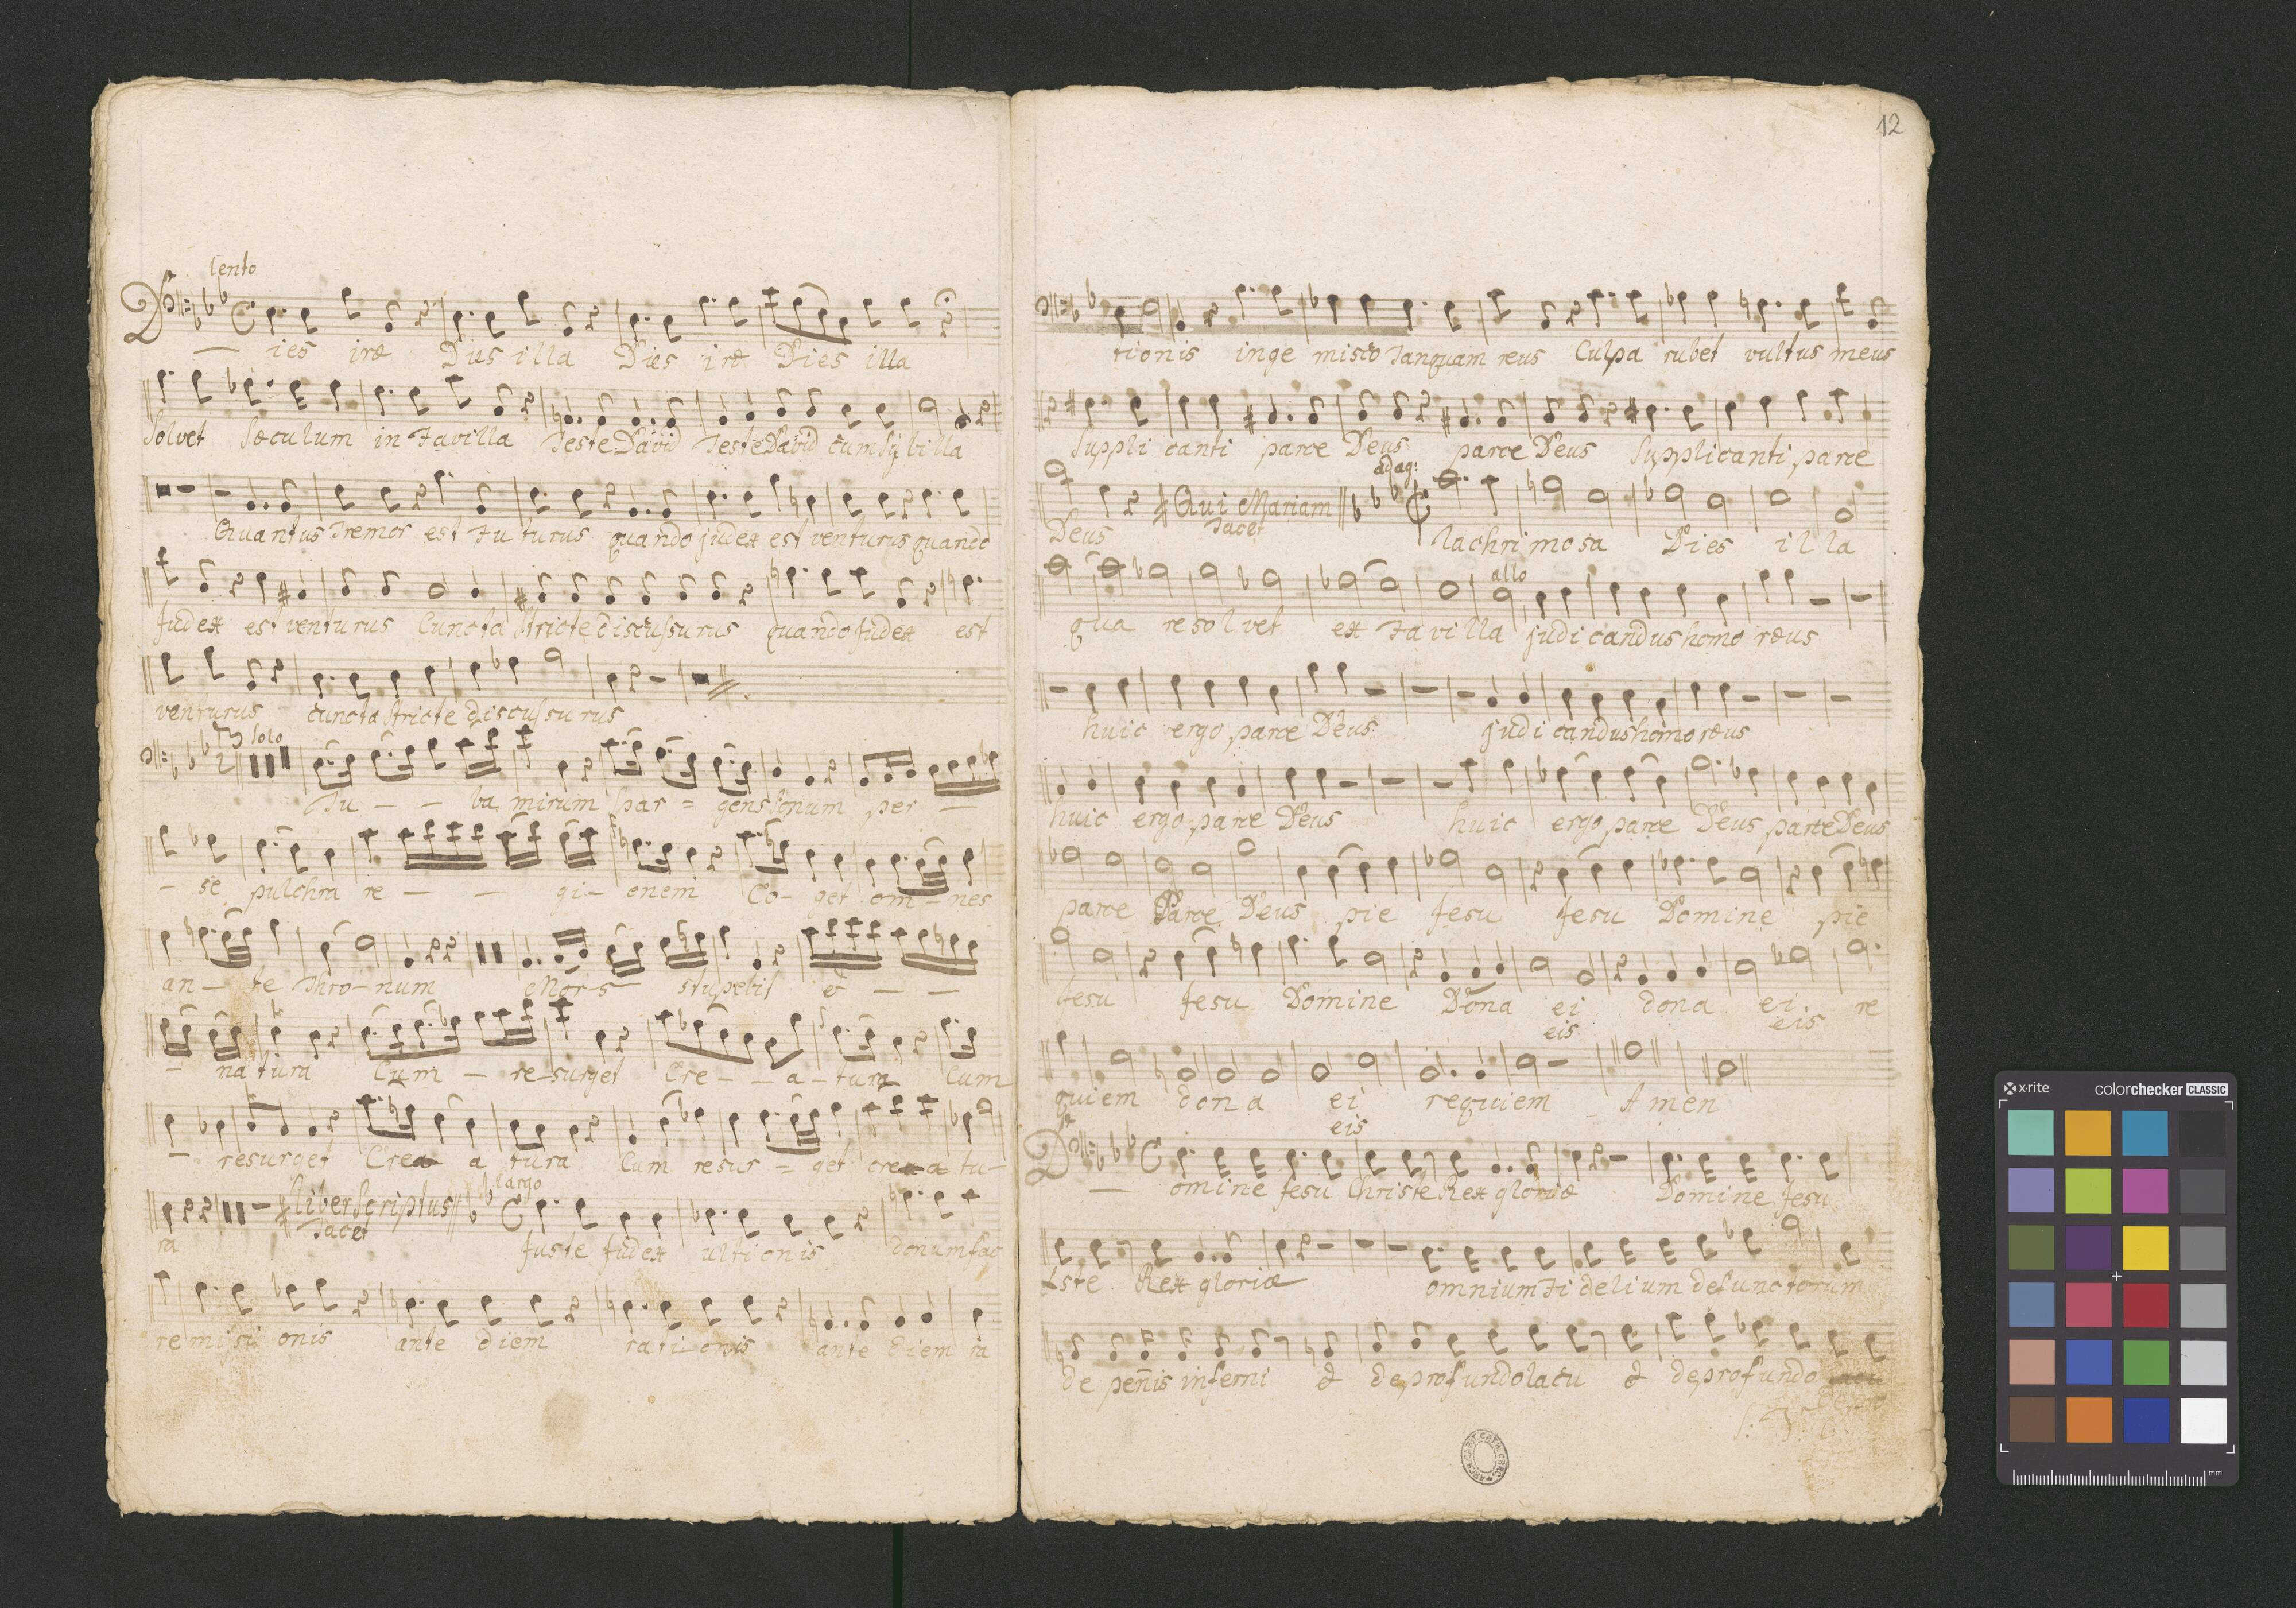 Lento
Dies iræ Dies illa Dies iræ Dies illa
Solvet sæculum in favilla Teste David Teste David cum Sÿbilla
Quantus Tremor est futurus quando judex est venturus quando
Judex est venturus Cuncta stricte discussurus quando Judex est
venturus cuncta stricte discussurus
Solo
Tu - - ba mirum spar = gens sonum per -
- se pulchra re - - gi - onem Co - get om - nes
an - te Thro - num Mors stupebit & - -
- na tura Cum - re - surget Cre - - a - tura Cum
- resurget Crea a tura Cum resur = get crea a tu -
largo
ra Liber Scriptus Tacet Juste Judex ultionis donum fac
remissi onis ante diem rati onis ante Diem ra
12
tionis inge misco Tanquam reus Culpa rubet vultus meus
Suppli canti parce Deus parce Deus Supplicanti parce
adag:
Deus Qui Mariam Tacet lachrimosa Dies illa
allo
qua resolvet ex favilla judicandus homo reus
huic ergo parce Deus judi candus homo reus
huic ergo parce Deus huic ergo parce Deus parce Deus
parce Parce Deus pie Jesu Jesu Domine pie
Jesu Jesu Domine Dona ei dona ei re
eis eis
quiem dona ei requiem Amen
eis
Domine Jesu Christe Rex gloriæ Domine Jesu
Xste Rex gloriæ omnium Fidelium defunctorum
de penis inferni & de profundo lacu & de profundo lacu
x-rite
colorchecker CLASSIC
mm